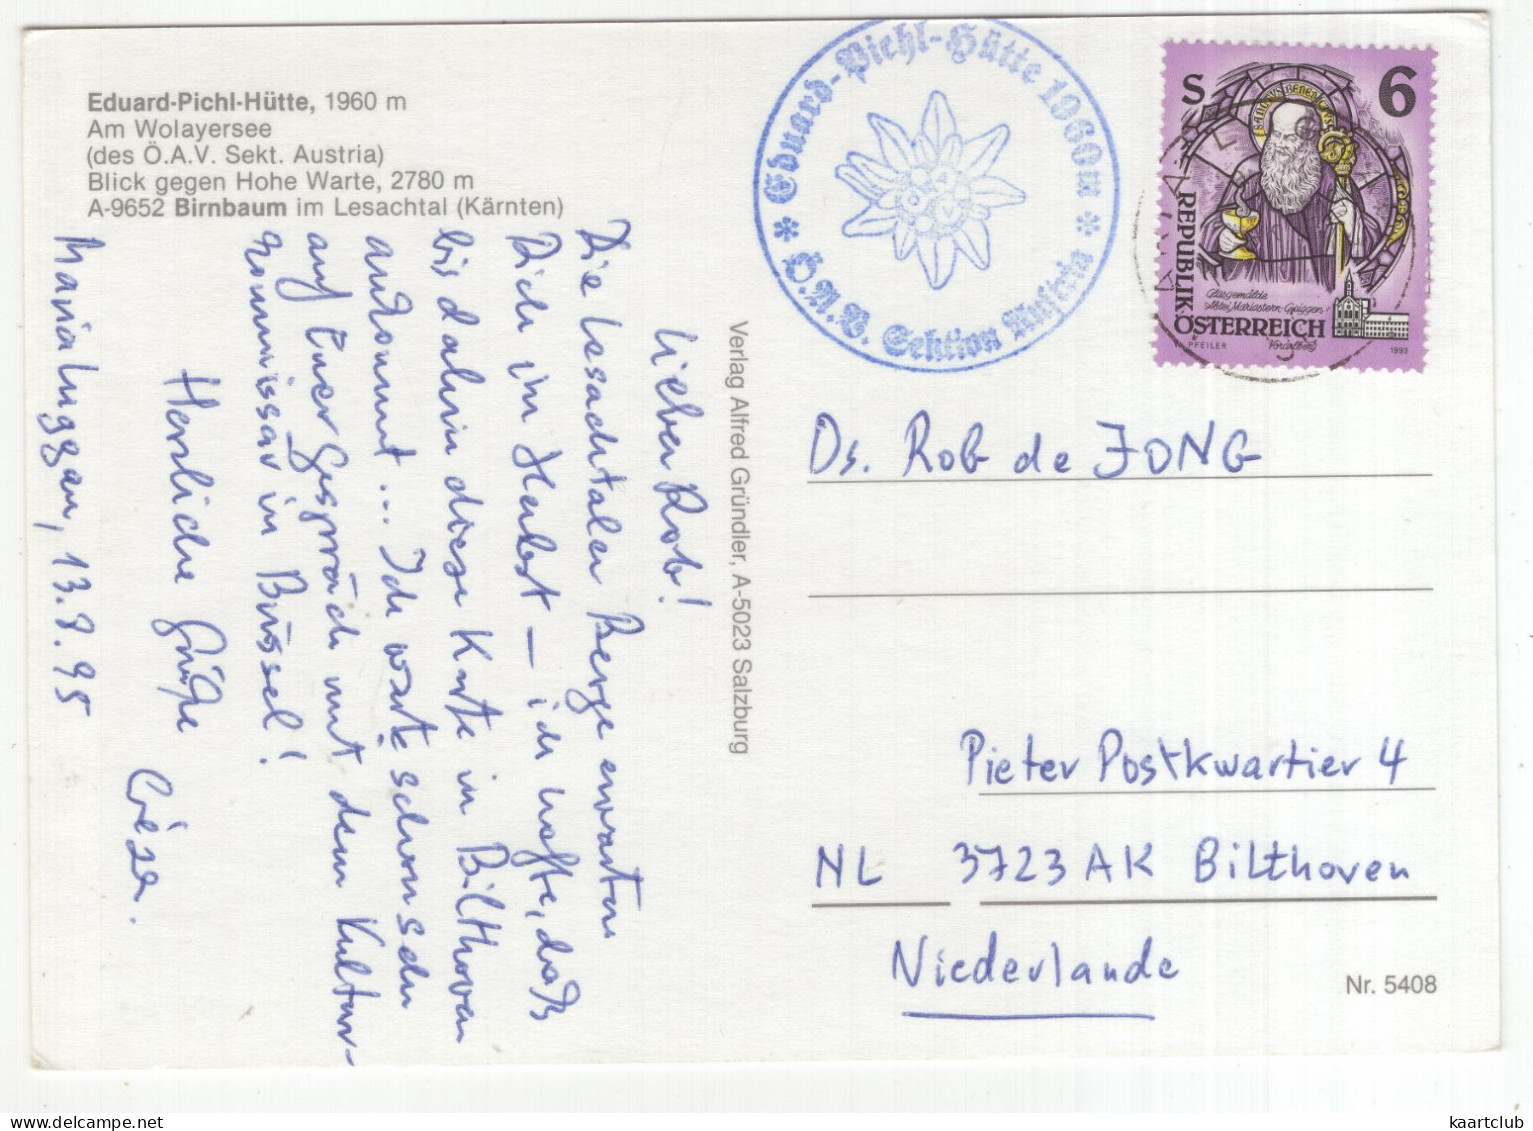 Eduard-Pichl-Hütte, 1960 m
Am Wolayersee
(des Ö.A.V. Sekt. Austria)
Blick gegen Hohe Warte, 2780 m
A-9652 Birnbaum im Lesachtal (Kärnten)
Eduard-Pichl-Hütte 1960m
Ö.A.V. Sektion Austria
S 6
SANCTUS BENEDICTUS
REPUBLIK
ÖSTERREICH
Glasgemälde
Abtei Mariastern-Gwiggen
Vorarlberg
PFEILER
1993
Lieber Rob!
Die Lesachtaler Berge erwarten
Dich im Herbst – ich hoffe, daß
bis dahin diese Karte in Bilthoven
ankommt ... Ich warte schon sehr
auf Euer Gespräch mit dem Kultur-
kommissar in Brüssel!
Herzliche Grüße
Géza.
Maria Luggau, 13.8.95
Verlag Alfred Gründler, A-5023 Salzburg
Ds. Rob de JONG
Pieter Postkwartier 4
NL 3723 AK Bilthoven
Niederlande
Nr. 5408
kaartclub